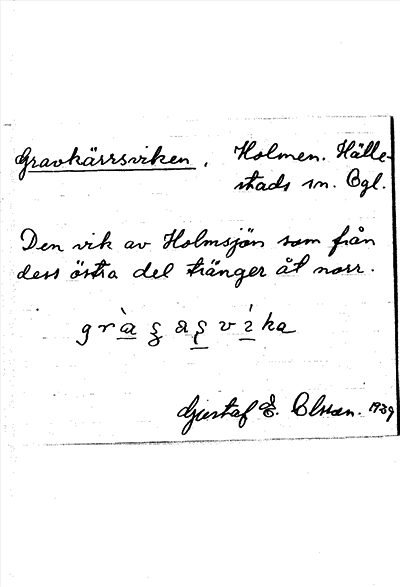 Gravkärrsviken, Holmen. Hälle-
stads sn. Ögl.
Den vik av Holmsjön som från
dess östra del tränger åt norr.
Gustaf E. Olsson. 1939